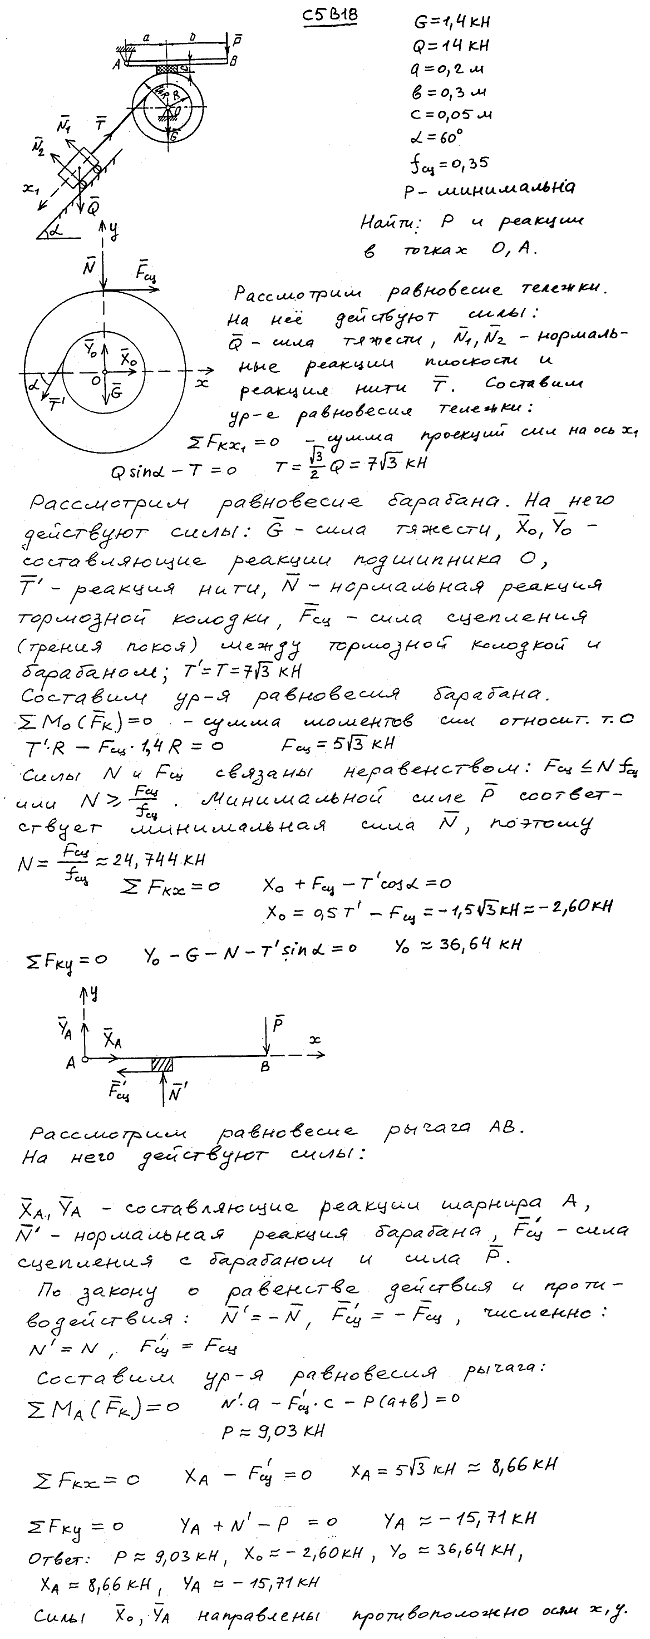 С5В18
G=1,4 кН
Q=14 кН
a=0,2 м
в=0,3 м
c=0,05 м
α=60°
fсц=0,35
P - минимальна
Найти: P и реакции
в точках O, A.
a
b
P̄
A
B
R
O
Ḡ
N̄₁
T̄
N̄₂
x₁
Q̄
α
y
N̄
F̄сц
Ȳ₀
X̄₀
O
Ḡ
x
α
T̄'
Рассмотрим равновесие тележки.
На неё действуют силы:
Q̄ - сила тяжести, N̄₁, N̄₂ - нормаль-
ные реакции плоскости и
реакция нити T̄. Составим
ур-е равновесия тележки:
ΣFкx₁=0 - сумма проекций сил на ось x₁
Q sinα - T = 0 T = √3/2 Q = 7√3 кН
Рассмотрим равновесие барабана. На него
действуют силы: Ḡ - сила тяжести, X̄₀, Ȳ₀ -
составляющие реакции подшипника O,
T̄' - реакция нити, N̄ - нормальная реакция
тормозной колодки, F̄сц - сила сцепления
(трения покоя) между тормозной колодкой и
барабаном; T'=T=7√3 кН
Составим ур-я равновесия барабана.
ΣM₀(F̄к)=0 - сумма моментов сил относит. т. O
T'·R - Fсц·1,4R = 0 Fсц = 5√3 кН
Силы N и Fсц связаны неравенством: Fсц ≤ N fсц
или N ≥ Fсц/fсц. Минимальной силе P̄ соответ-
ствует минимальная сила N̄, поэтому
N = Fсц/fсц ≈ 24,744 кН
ΣFкx=0 X₀ + Fсц - T'cosα = 0
X₀ = 0,5T' - Fсц = -1,5√3 кН ≈ -2,60 кН
ΣFкy=0 Y₀ - G - N - T'sinα = 0 Y₀ ≈ 36,64 кН
y
ȲA
X̄A
P̄
A
B
x
F̄'сц
N̄'
Рассмотрим равновесие рычага AB.
На него действуют силы:
X̄A, ȲA - составляющие реакции шарнира A,
N̄' - нормальная реакция барабана, F̄'сц - сила
сцепления с барабаном и сила P̄.
По закону о равенстве действия и проти-
водействия: N̄' = -N̄, F̄'сц = -F̄сц, численно:
N' = N, F'сц = Fсц
Составим ур-я равновесия рычага:
ΣMA(F̄к)=0 N'·a - F'сц·c - P(a+в)=0
P ≈ 9,03 кН
ΣFкx=0 XA - F'сц = 0 XA = 5√3 кН ≈ 8,66 кН
ΣFкy=0 YA + N' - P = 0 YA ≈ -15,71 кН
Ответ: P ≈ 9,03 кН, X₀ ≈ -2,60 кН, Y₀ ≈ 36,64 кН,
XA ≈ 8,66 кН, YA ≈ -15,71 кН
Силы X̄₀, ȲA направлены противоположно осям x, y.